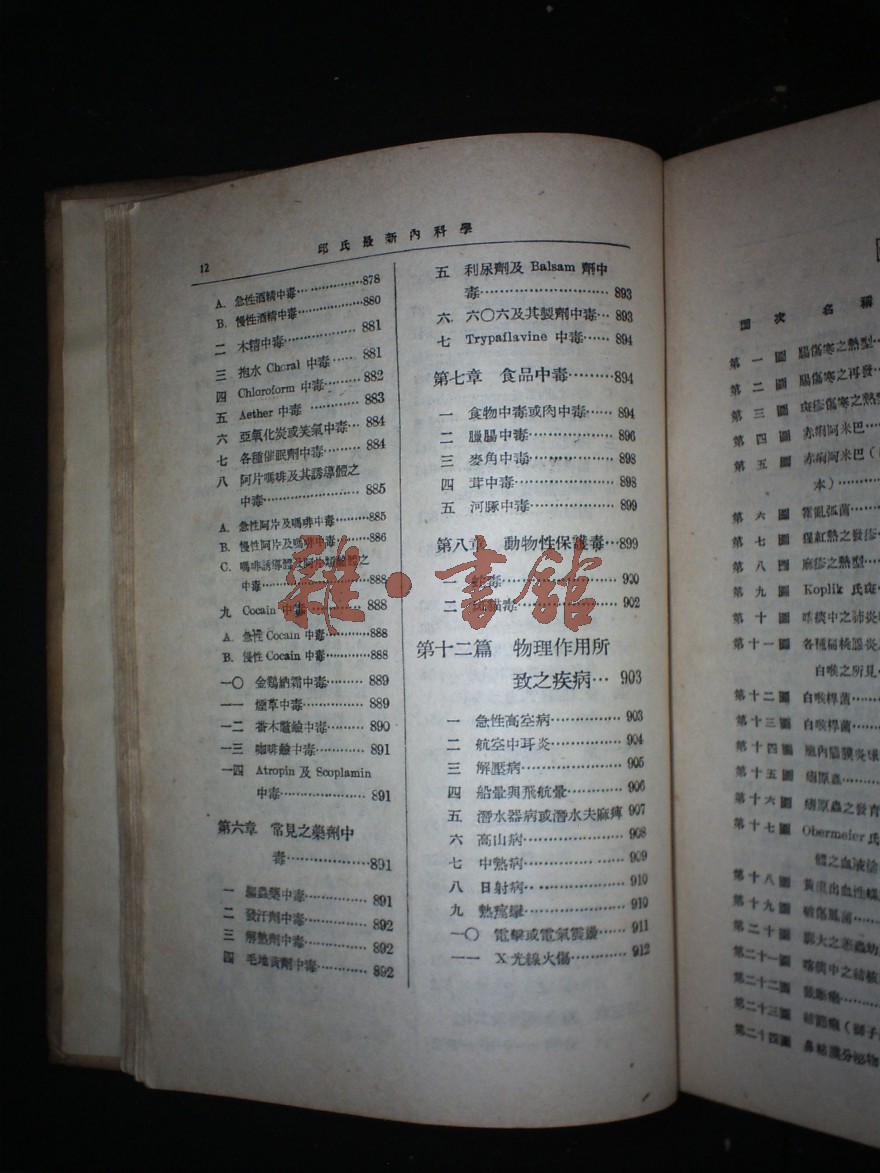 12
邱氏最新內科學
A. 急性酒精中毒……………878
B. 慢性酒精中毒……………880
二 木精中毒……………… 881
三 抱水 Choral 中毒…… 881
四 Chloroform 中毒……… 882
五 Aether 中毒 ………… 883
六 亞氧化炭或笑氣中毒… 884
七 各種催眠劑中毒……… 884
八 阿片嗎啡及其誘導體之
中毒…………………… 885
A. 急性阿片及嗎啡中毒……885
B. 慢性阿片及嗎啡中毒……886
C. 嗎啡誘導體及阿片類鹼體之
中毒……………………888
九 Cocain 中毒 ………… 888
A. 急性 Cocain 中毒………888
B. 慢性 Cocain 中毒………888
一〇 金鷄納霜中毒……… 889
一一 煙草中毒…………… 889
一二 蕃木鼈鹼中毒……… 890
一三 咖啡鹼中毒………… 891
一四 Atropin 及 Scoplamin
中毒…………………891
第六章 常見之藥劑中
毒………………891
一 驅蟲藥中毒………… 891
二 發汗劑中毒………… 892
三 解熱劑中毒………… 892
四 毛地黃劑中毒……… 892
五 利尿劑及 Balsam 劑中
毒…………………… 893
六 六〇六及其製劑中毒… 893
七 Trypaflavine 中毒…… 894
第七章 食品中毒………894
一 食物中毒或肉中毒…… 894
二 臘腸中毒…………… 896
三 麥角中毒…………… 898
四 茸中毒……………… 898
五 河豚中毒…………… 899
第八章 動物性保護毒…899
一 蛇毒………………… 900
二 斑貓毒……………… 902
第十二篇 物理作用所
致之疾病… 903
一 急性高空病………… 903
二 航空中耳炎………… 904
三 解壓病……………… 905
四 船暈與飛航暈……… 906
五 潛水器病或潛水夫麻痺 907
六 高山病……………… 908
七 中熱病……………… 909
八 日射病……………… 910
九 熱痙攣……………… 910
一〇 電擊或電氣震盪…… 911
一一 X光線火傷………… 912
雜·書館
圖次 名稱
第一圖 腸傷寒之熱型…
第二圖 腸傷寒之再發…
第三圖 斑疹傷寒之熱型
第四圖 赤痢阿米巴……
第五圖 赤痢阿米巴（
本）………
第六圖 霍亂弧菌……
第七圖 猩紅熱之發疹…
第八圖 麻疹之熱型……
第九圖 Koplik 氏斑…
第十圖 咯痰中之肺炎
第十一圖 各種扁桃腺炎
白喉之所見…
第十二圖 白喉桿菌……
第十三圖 白喉桿菌……
第十四圖
第十五圖 瘧原蟲……
第十六圖 瘧原蟲之發育
第十七圖 Obermeier 氏
體之血液塗
第十八圖 黃疸出血性
第十九圖 破傷風菌……
第二十圖
第二十一圖 咯痰中之結核
第二十二圖
第二十三圖 （獅子
第二十四圖 鼻粘膜分泌物